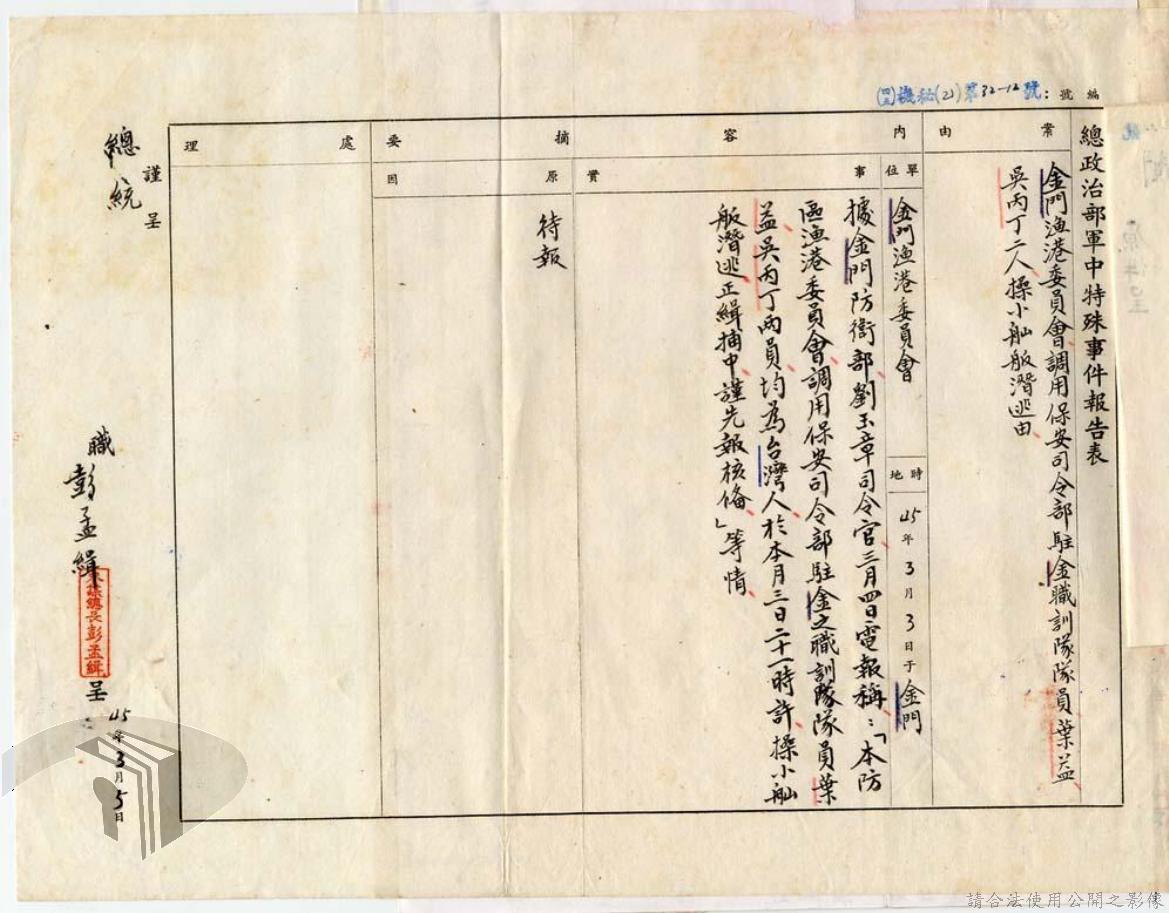 編號：(四五)機秘(乙)第32-12號
總政治部軍中特殊事件報告表
案由
金門漁港委員會調用保安司令部駐金職訓隊隊員葉益
吳丙丁二人操小舢舨潛逃由
內容摘要
單位
金門漁港委員會
時地
45年3月3日于金門
事實
據金門防衛部劉玉章司令官三月四日電報稱：「本防
區漁港委員會調用保安司令部駐金之職訓隊隊員葉
益吳丙丁兩員均為台灣人於本月三日二十一時許操小舢
舨潛逃正緝捕中謹先報核備」等情
原因
待報
處理
謹呈
總統
職彭孟緝呈
參謀總長彭孟緝
45年3月5日
請合法使用公開之影像